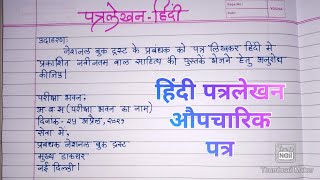 पत्रलेखन-हिंदी
उदाहरण:
नेशनल बुक ट्रस्ट के प्रबंधक को पत्र लिखकर हिंदी मे
प्रकाशित नवीनतम बाल साहित्य की पुस्तके भेजने हेतु अनुरोध
कीजिए।
परीक्षा भवन:
अ ब स (परीक्षा भवन का नाम)
सेवा में,
प्रबंधक नेशनल बुक ट्रस्ट
नई दिल्ली।
हिंदी पत्रलेखन
औपचारिक
पत्र